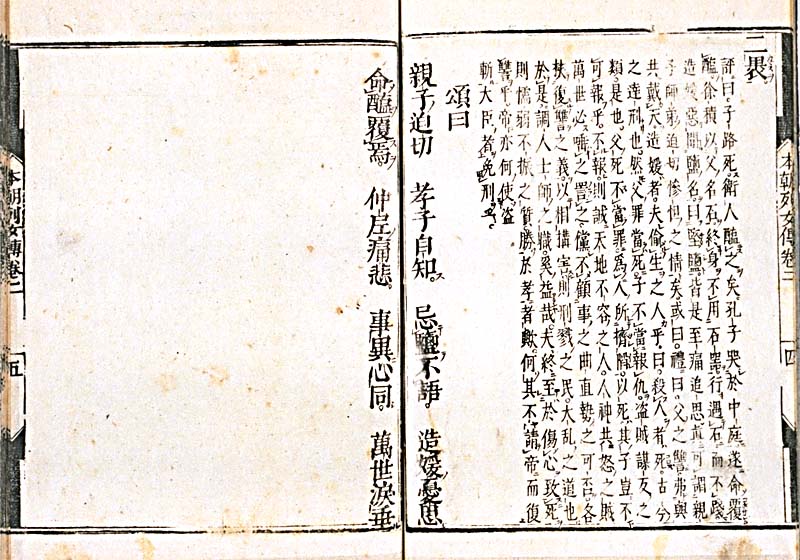 評曰。子路死衛人醢之矣。孔子哭於中庭。遂命覆
醢。徐積以父名石。終身不用石器。行遇石而不踐
造媛惡聞鹽名。曰堅鹽。皆是至痛追思。真可謂親
子師弟迫切慘怛之情矣。或曰。禮曰。父之讐弗與
共戴天。造媛者。夫偷生之人乎。曰。殺人者死。古今
之達刑也。然父罪當死。子不當報仇。盜賊謀反之
類是也。父死不當罪。為人所擠醢以死。其子豈不
可報乎。不報則誠天地不容之人。人神共怒之賊
萬世必唾之置之。儻不顧事之曲直勢之可否。各
扶復讐之義。以相搆害。則刑戮之民。大乱之道也
於是調人士師之職。奚益哉。夫終至於傷心致死
則懦弱不振之質。勝於孝者歟。何其不請帝而復
讐乎。帝亦何使盜
斬大臣者免刑也。
頌曰
親子迫切　孝子自知。　忌鹽不語。　造媛憂思
命醢覆焉。　仲尼痛悲。　事異心同。　萬世淚垂
本朝列女傳卷二　四
本朝列女傳卷二　五